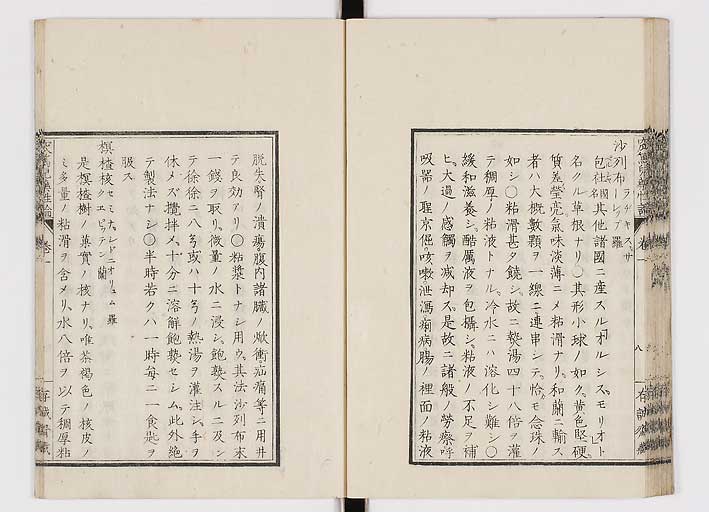 沙列布 ラヂキス、サ
ーレプ 羅
包社 名國其他諸國ニ産スルオルシス、モリオト
名クル草根ナリ〇其形小球ノ如ク、黄色堅硬
質差瑩亮氣味淡薄ニメ粘滑ナリ、和蘭ニ輸ス
者ハ大概數顆ヲ一線ニ連串シテ、恰モ念珠ノ
如シ〇粘滑甚タ饒シ、故ニ熱湯四十八倍ヲ灌
テ稠厚ノ粘液トナル、冷水ニハ溶化シ難シ〇
緩和滋養シ、酷厲液ヲ包攝シ、粘液ノ不足ヲ補
ヒ、大過ノ感觸ヲ減却ス、是故ニ諸般ノ勞瘵呼
吸器ノ聖京倔、咳嗽泄瀉痢病腸ノ裡面ノ粘液
八
脱失腎ノ潰瘍腹内諸臟ノ焮衝疝痛等ニ用井
テ良効アリ〇粘漿トナシ用ウ、其法沙列布末
一錢ヲ取リ、微量ノ水ニ浸シ、飽熟スルニ及ン
テ徐徐ニ八ヲ或ハ十ヲノ熱湯ヲ灌注シ、手ヲ
休メズ攪拌ス、十分ニ溶解飽熟セシム、此外絶
テ製法ナシ〇半時若クハ一時每ニ一食匙ヲ
服ス
榠樝核 セミナ、シドニオリュム 羅
クエ ピッテン 蘭
是榠樝樹ノ菓實ノ核ナリ、唯茶褐色ノ核皮ノ
ミ多量ノ粘滑ヲ含メリ、水八倍ヲ以テ稠厚粘
卷一